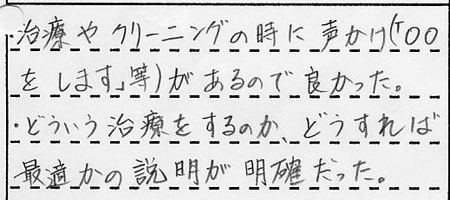 ・治療やクリーニングの時に声かけ(「○○
をします」等)があるので良かった。
・どういう治療をするのか、どうすれば
最適かの説明が明確だった。